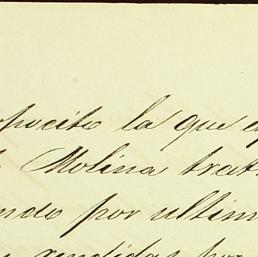 opocito la que
Molina trat
ndo por ultim
rendidas por